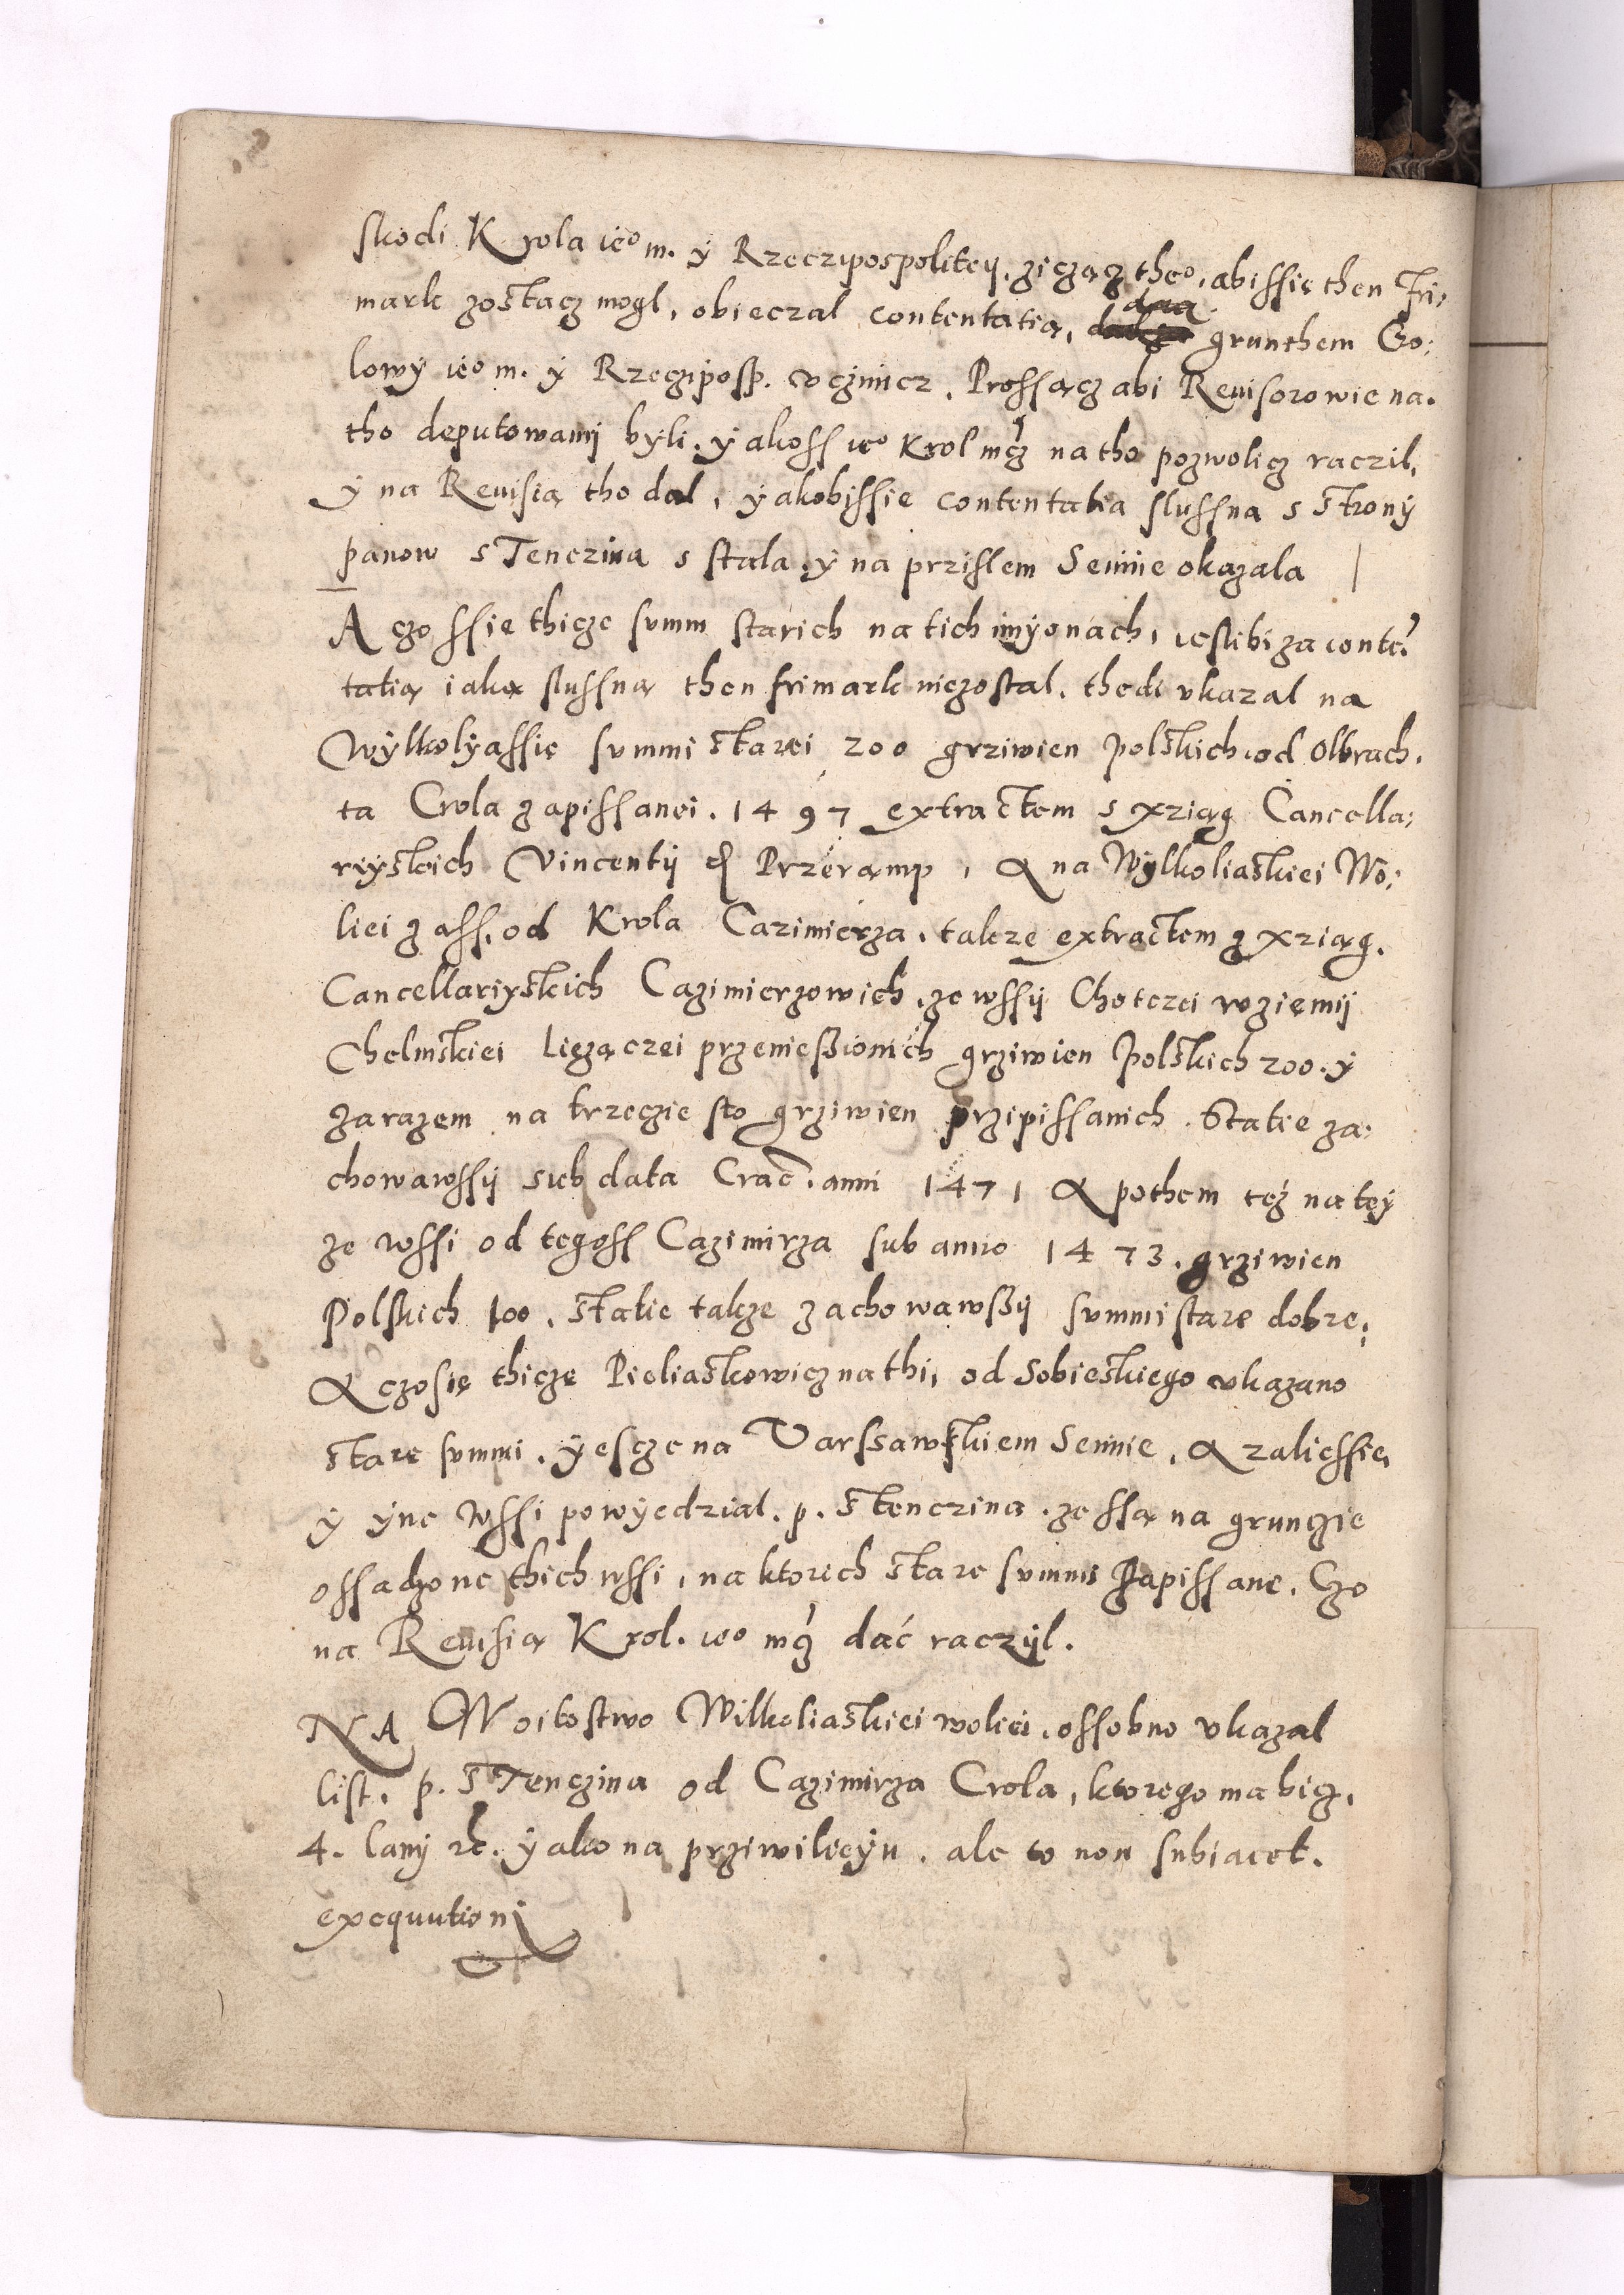 skodi Krola ieo m. ÿ Rzeczipospolitey, ziczącz theo, abissię then fri,
mark zostacz mogl, obieczal contentatią, grunthem Cro:
lowÿ ieo m. ÿ Rzecziposp. vczinicz. Prossącz abi Reuisorowie na.
tho deputowanij byli. ÿ akoss ieo Krol mcz na tho pozwolicz raczil,
ÿ na Reuisią tho dal, ÿakobissie contentatia slussna s strony
panow s Tenczina s stala. ÿ na przislem Seimie okazala
A czo ssię thicze summ starich na tich imÿonach, ieslibi za conte~
tatią iaką slussną then frimark niezostal. thedi vkazal na
Wÿlkolyassie summi starei 200 grziwien polskich od Olbrach.
ta Crola zapissanei. 1497 extractem s xziąg Cancella:
riyskich Vincentij de Przeramp, A na Wÿlkoliaskiei Wo:
liei zass, od Krola Cazimierza, takze extractem z xziąg.
Cancellariyskich Cazimierzowich, ze wssij Chotczei w ziemij
Chelmskiei liezączei przeniessionich grziwien polskich 200. ÿ
zarazem na trzeczie sto grziwien przipissanich. Statie za:
chowawssij sub data Crac. anni 1471 A pothem też na teÿ
ze wssi od tegoss Cazimirza sub anno 1473. grziwien
Polskich 100. statie takze zachowawssij summi stare dobre;
A czosię thicze Pieliaskowicz na thi, od Sobieskiego vkazano
stare summi. ÿ escze na Varssawskiem Seimie, A zaliessie,
ÿ ÿne wssi powÿedzial. p. s tenczina. ze ssą na grunczie
ossadzone thich wssi, na ktorich stare summi zapissane. Czo
na Reuisią Krol. ieo mcz dać raczÿl.
NA Woitostwo Wilkoliaskiei woliei. ossobno vkazal
list. p. s Tenczina od Cazimirza Crola, ktorego ma bicz.
4. lanÿ rc. ÿ ako na prziwilieÿu. ale to non subiacet.
exequutioni